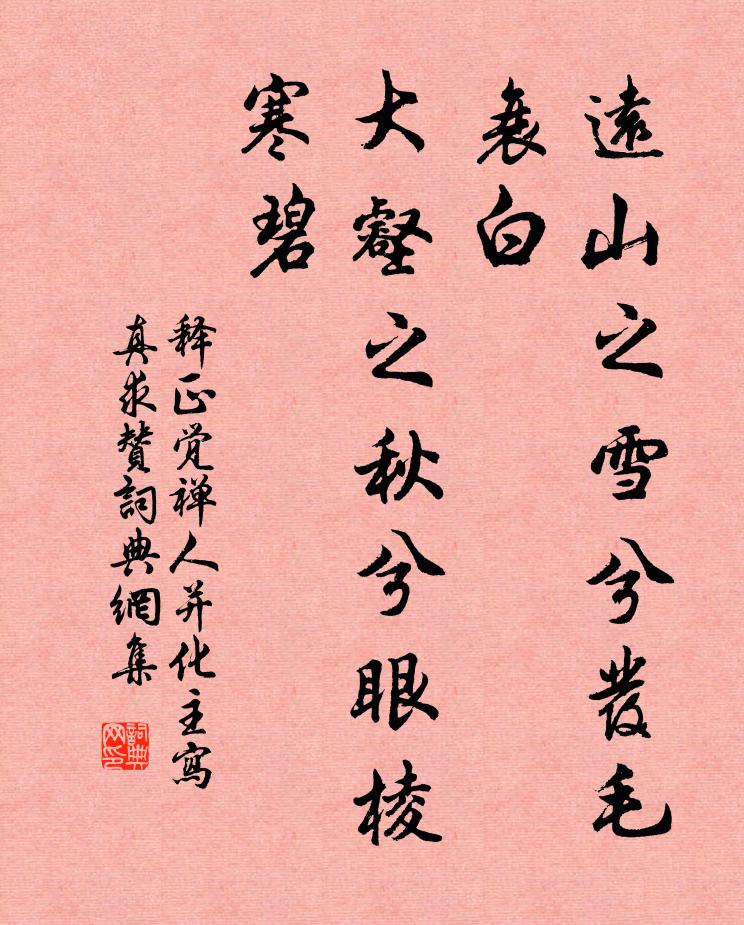 遠山之雪兮發毛
衰白
大壑之秋兮眼棱
寒碧
释正觉禅人并化主寫
真求賛詞典網集
詞典
网印